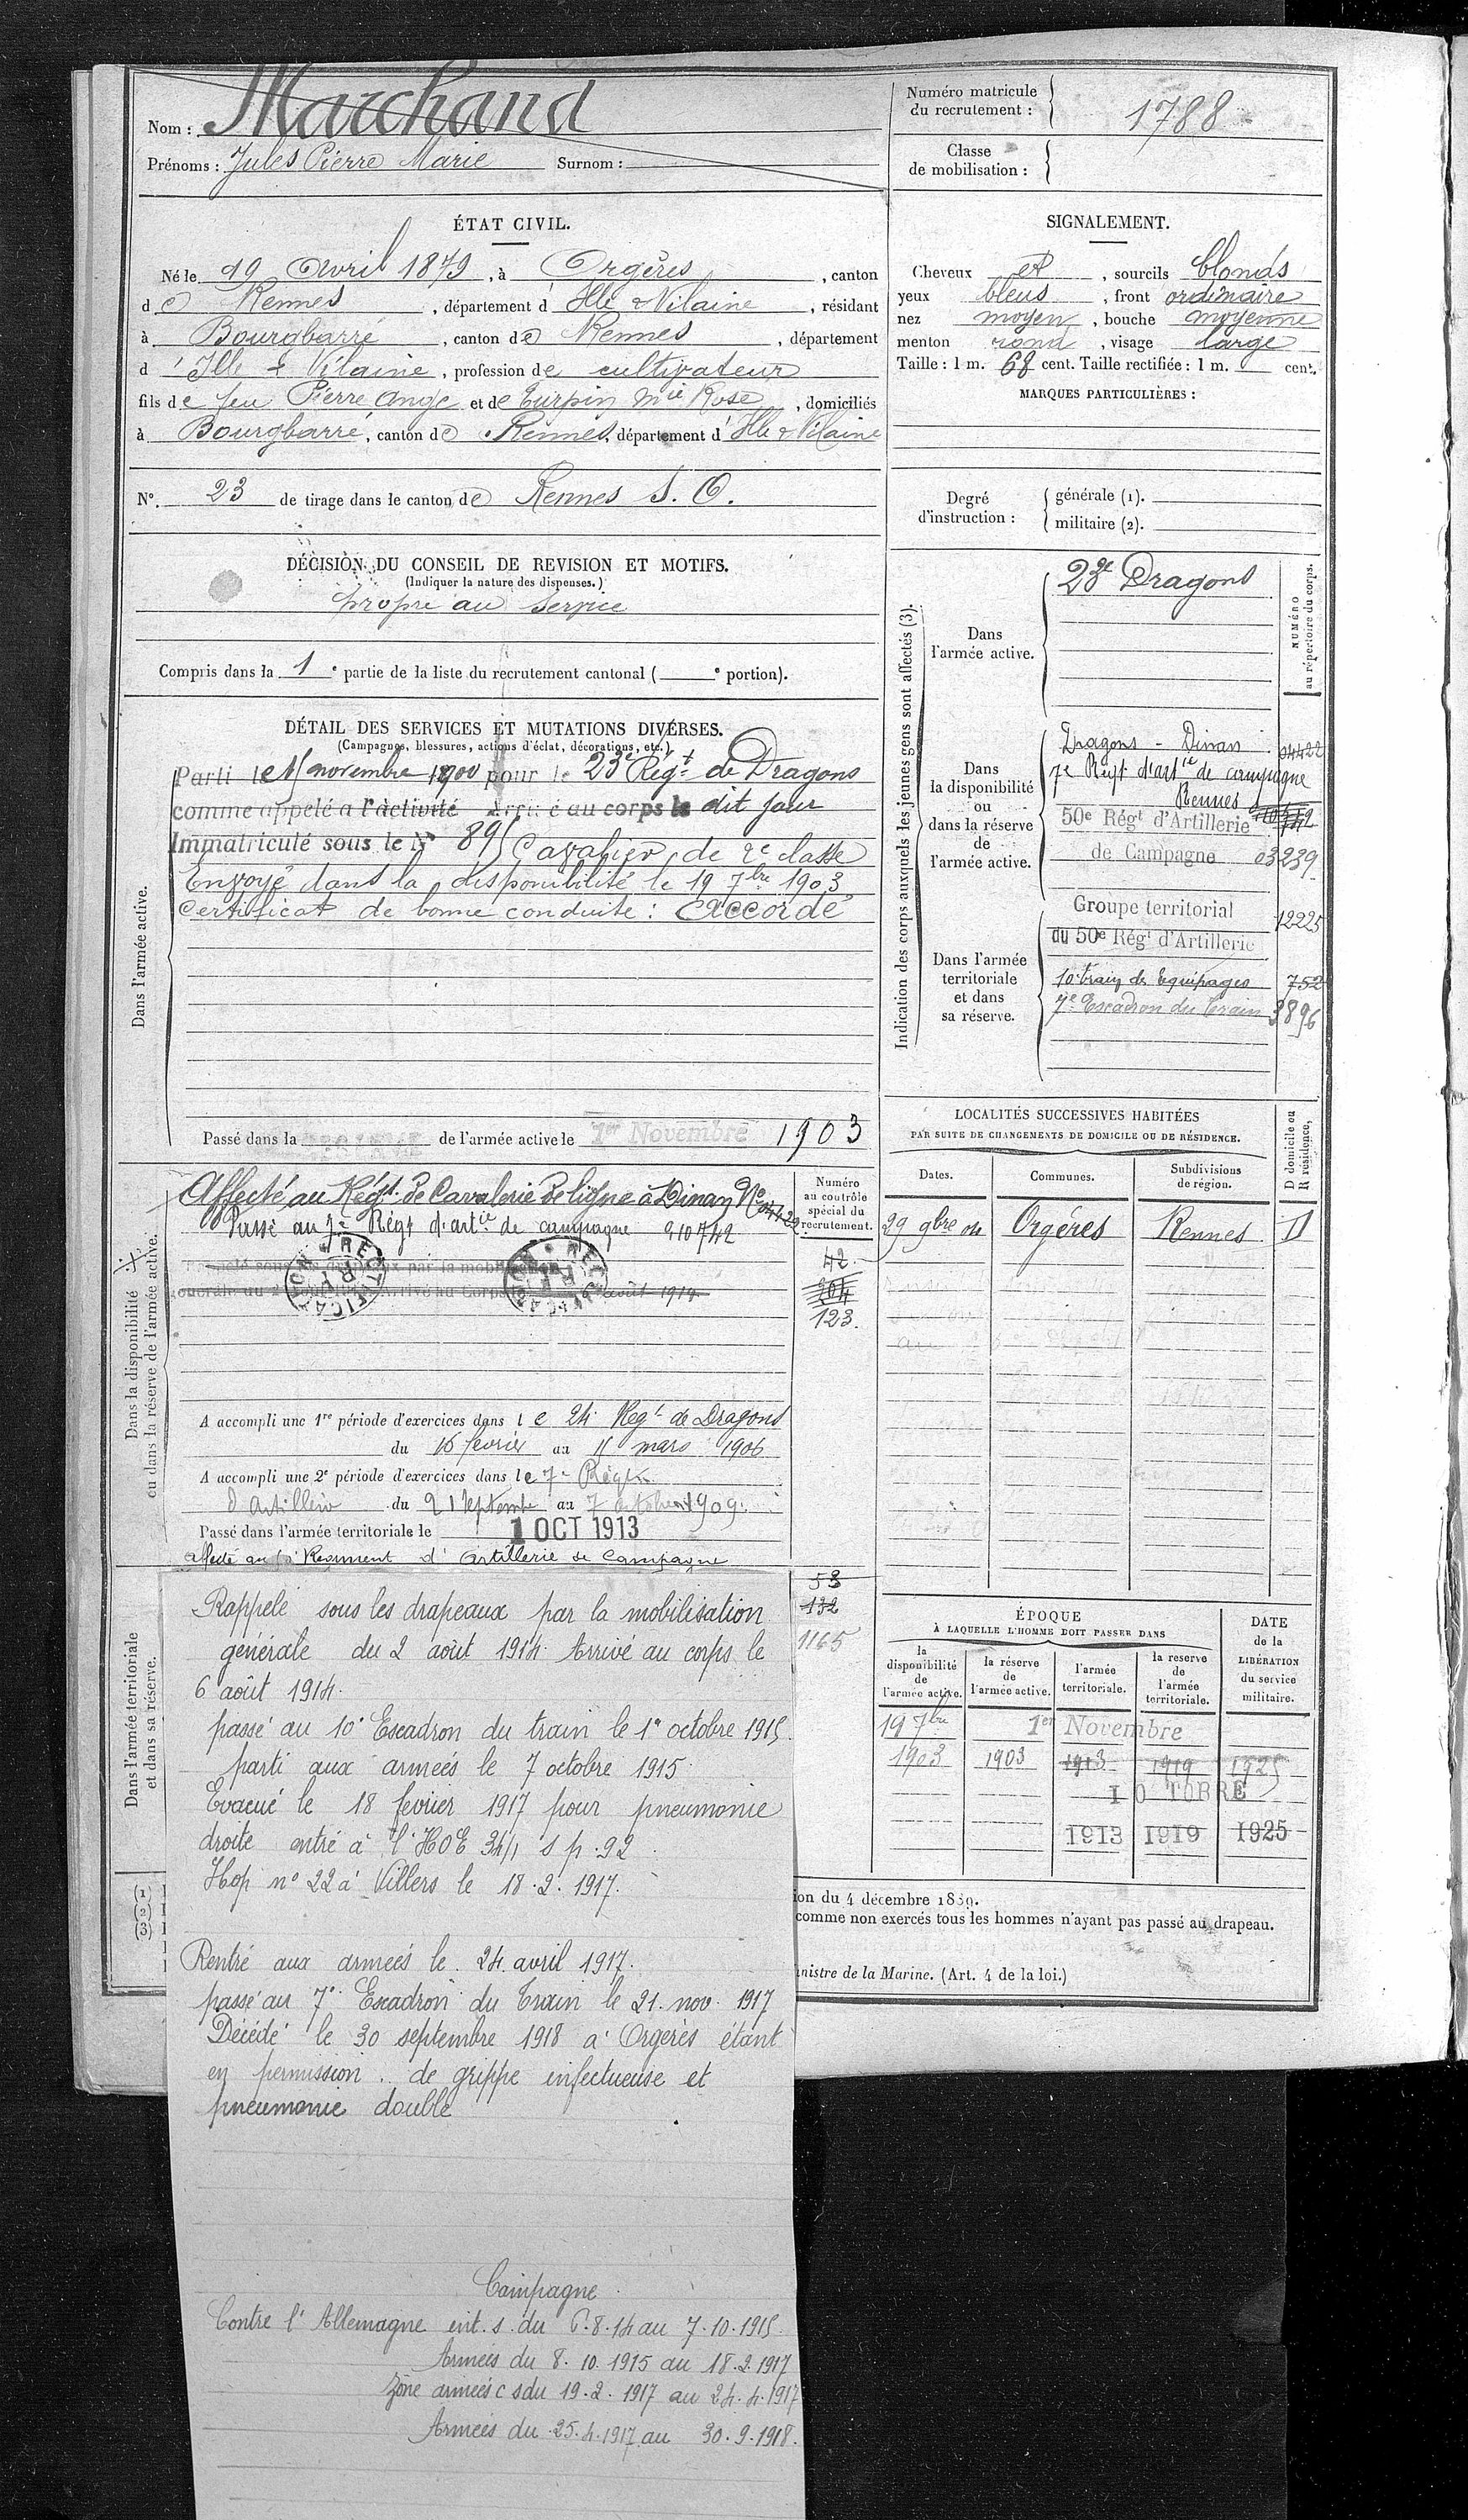 Nom : Marchand
Prénoms : Jules Pierre Marie Surnom :
Numéro matricule du recrutement : 1788
Classe de mobilisation :
ÉTAT CIVIL.
Né le 19 Avril 1879, à Orgères, canton
de Rennes, département d'Ille & Vilaine, résidant
à Bourgbarré, canton de Rennes, département
d'Ille & Vilaine, profession de cultivateur
fils de feu Pierre Ange et de Turpin Mie Rose, domiciliés
à Bourgbarré, canton de Rennes, département d'Ille & Vilaine
N° 23 de tirage dans le canton de Rennes S. O.
SIGNALEMENT.
Cheveux et, sourcils blonds
yeux bleus, front ordinaire
nez moyen, bouche moyenne
menton rond, visage large
Taille : 1 m. 68 cent. Taille rectifiée : 1 m. cent.
MARQUES PARTICULIÈRES :
Degré d'instruction : générale (1).
militaire (2).
DÉCISION DU CONSEIL DE REVISION ET MOTIFS.
(Indiquer la nature des dispenses.)
propre au service
Compris dans la 1e partie de la liste du recrutement cantonal ( e portion).
DÉTAIL DES SERVICES ET MUTATIONS DIVERSES.
(Campagnes, blessures, actions d'éclat, décorations, etc.)
Dans l'armée active.
Parti le novembre 1900 pour le 23e Régt de Dragons
comme appelé à l'activité Arrivé au corps le dit jour
Immatriculé sous le N° Cavalier de 2e classe
Envoyé dans la disponibilité le 19 7bre 1903
Certificat de bonne conduite : Accordé
Passé dans la de l'armée active le 1er Novembre 1903
Indication des corps auxquels les jeunes gens sont affectés (3).
NUMÉRO au répertoire du corps.
Dans l'armée active.
23e Dragons
Dans la disponibilité ou dans la réserve de l'armée active.
Dragons - Dinan
7e Régt d'artie de campagne
Rennes
50e Régt d'Artillerie
de Campagne 03239
Dans l'armée territoriale et dans sa réserve.
Groupe territorial 12225
du 50e Régt d'Artillerie
10e train des Equipages 752
7e Escadron du Train 3896
LOCALITÉS SUCCESSIVES HABITÉES
PAR SUITE DE CHANGEMENTS DE DOMICILE OU DE RÉSIDENCE.
D domicile ou R résidence,
Dates. Communes. Subdivisions de région.
29 9bre 04 Orgères Rennes D
Dans la disponibilité ou dans la réserve de l'armée active.
Numéro au contrôle spécial du recrutement.
Affecté au Régt de Cavalerie de ligne à Dinan N°
Passé au 7e Régt d'artie de campagne
RECTIFICATION RF
RECTIFICATION RF
6 août 1914
42.
204
123.
A accompli une 1re période d'exercices dans le 24e Régt de Dragons
du 16 février au mars 1906
A accompli une 2e période d'exercices dans le 7e Régt
d'Artillerie du 21 Septembre au 7 octobre 1909.
Passé dans l'armée territoriale le 1 OCT 1913
affecté au Régiment d'Artillerie de Campagne
Dans l'armée territoriale et dans sa réserve.
53
132
1165
Rappelé sous les drapeaux par la mobilisation
générale du 2 août 1914 Arrivé au corps le
6 août 1914.
passé au 10e Escadron du train le 1er octobre 1915.
parti aux armées le 7 octobre 1915.
Evacué le 18 février 1917 pour pneumonie
droite entré à l'HOE 34/1 s p. 92
Hop n° 22 à Villers le 18.2.1917.
Rentré aux armées le 24 avril 1917.
passé au 7e Escadron du Train le 21. nov. 1917
Décédé le 30 septembre 1918 à Orgerès étant
en permission.. de grippe infectueuse et
pneumonie double
Campagne.
Contre l'Allemagne int. s. du 6.8.14 au 7.10.1915.
Armées du 8.10.1915 au 18.2.1917
Zone armées c s du 19.2.1917 au 24.4.1917
Armées du 25.4.1917 au 30.9.1918.
ÉPOQUE
À LAQUELLE L'HOMME DOIT PASSER DANS
DATE de la LIBÉRATION du service militaire.
la disponibilité de l'armée active. la réserve de l'armée active. l'armée territoriale. la réserve de l'armée territoriale.
19 7bre 1er Novembre
1903 1903 1913 1919 1925
1 O TOBRE
1913 1919 1925
(1)
(2)
(3)
ion du 4 décembre 1889.
comme non exercés tous les hommes n'ayant pas passé au drapeau.
inistre de la Marine. (Art. 4 de la loi.)